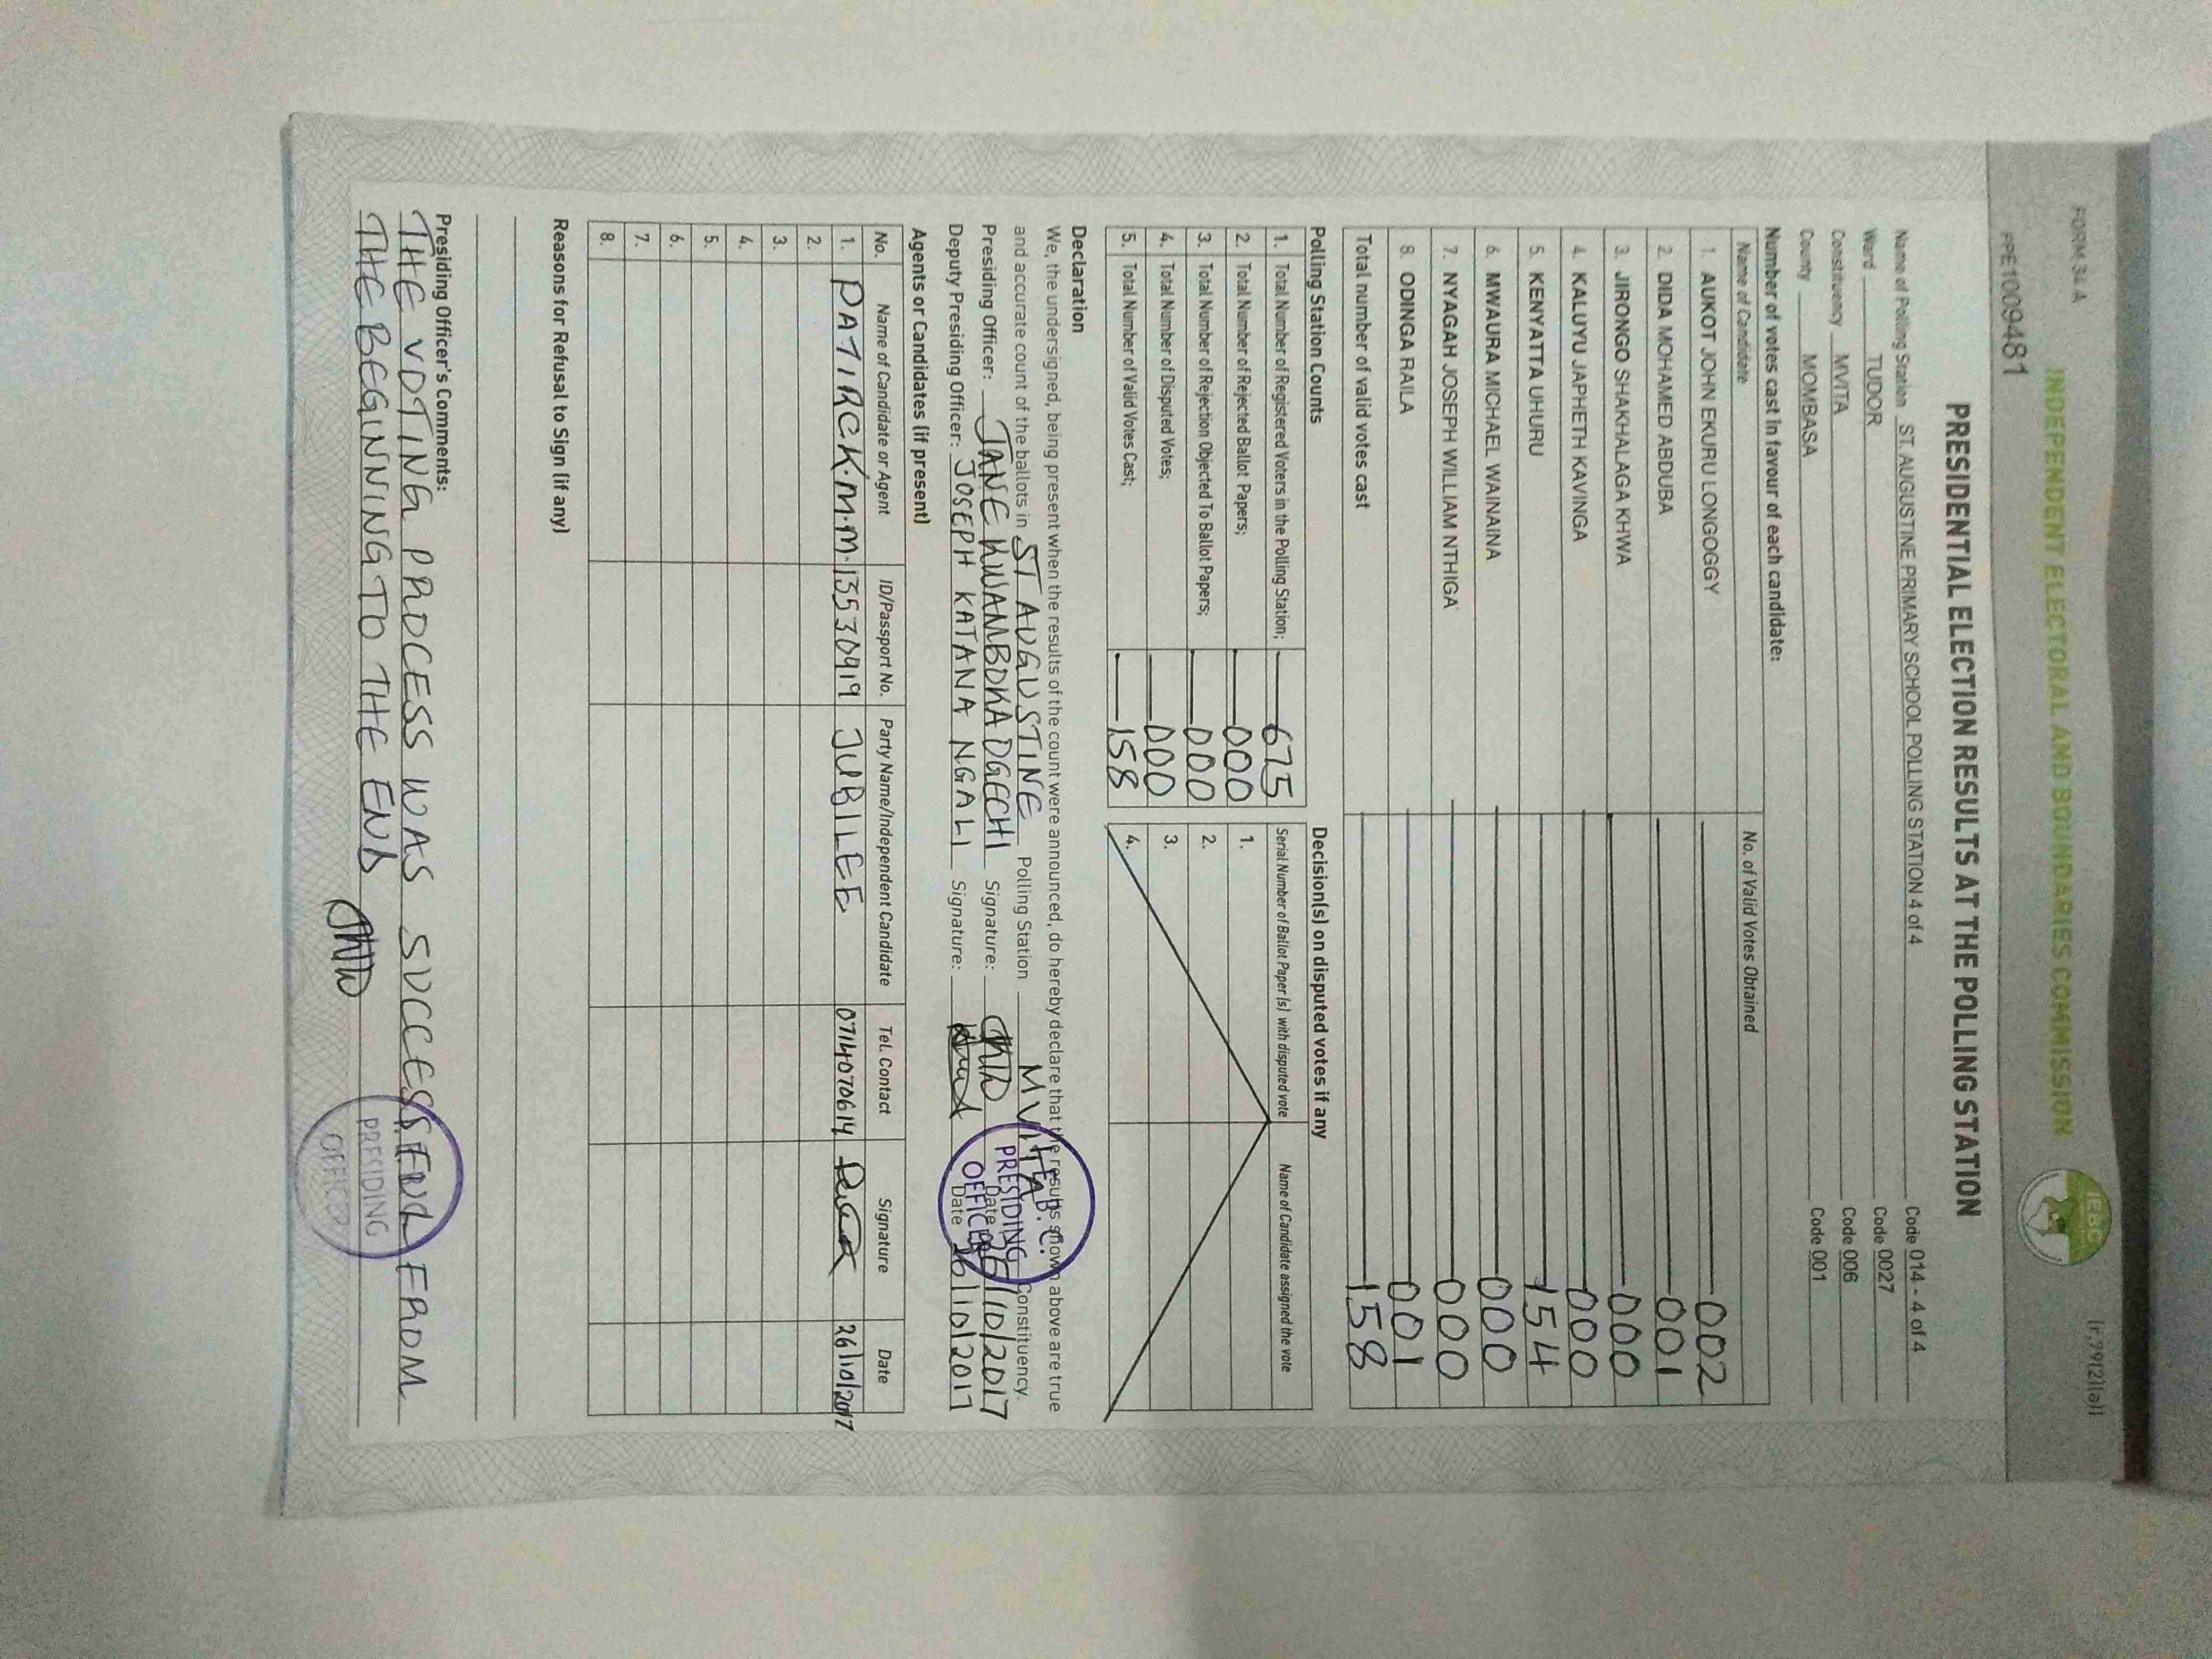 FORM 34 A
(r.79(2)(a))
INDEPENDENT ELECTORAL AND BOUNDARIES COMMISSION
IEBC
PRE1009481
PRESIDENTIAL ELECTION RESULTS AT THE POLLING STATION
Name of Polling Station ST. AUGUSTINE PRIMARY SCHOOL POLLING STATION 4 of 4 Code 014 - 4 of 4
Ward TUDOR Code 0027
Constituency MVITA Code 006
County MOMBASA Code 001
Number of votes cast in favour of each candidate:
Name of Candidate No. of Valid Votes Obtained
1. AUKOT JOHN EKURU LONGOGGY 002
2. DIDA MOHAMED ABDUBA 001
3. JIRONGO SHAKHALAGA KHWA 000
4. KALUYU JAPHETH KAVINGA 000
5. KENYATTA UHURU 154
6. MWAURA MICHAEL WAINAINA 000
7. NYAGAH JOSEPH WILLIAM NTHIGA 000
8. ODINGA RAILA 001
Total number of valid votes cast 158
Polling Station Counts
1. Total Number of Registered Voters in the Polling Station; 675
2. Total Number of Rejected Ballot Papers; 000
3. Total Number of Rejection Objected To Ballot Papers; 000
4. Total Number of Disputed Votes; 000
5. Total Number of Valid Votes Cast; 158
Decision(s) on disputed votes if any
Serial Number of Ballot Paper (s) with disputed vote Name of Candidate assigned the vote
1.
2.
3.
4.
Declaration
We, the undersigned, being present when the results of the count were announced, do hereby declare that the results shown above are true
and accurate count of the ballots in ST AUGUSTINE Polling Station MVITA Constituency.
Presiding Officer: JANE KWAMBOKA OGECHI Signature: Date 26/10/2017
Deputy Presiding Officer: JOSEPH KATANA NGALI Signature: Date 26/10/2017
I.E.B.C.
PRESIDING
OFFICER
Agents or Candidates (if present)
No. Name of Candidate or Agent ID/Passport No. Party Name/Independent Candidate Tel. Contact Signature Date
1. PATIRCK.M.M. 13530919 JUBILEE 0714070614 26/10/2017
2.
3.
4.
5.
6.
7.
8.
Reasons for Refusal to Sign (if any)
Presiding Officer's Comments:
THE VOTING PROCESS WAS FROM
THE BEGINNING TO THE END
PRESIDING
OFFICER